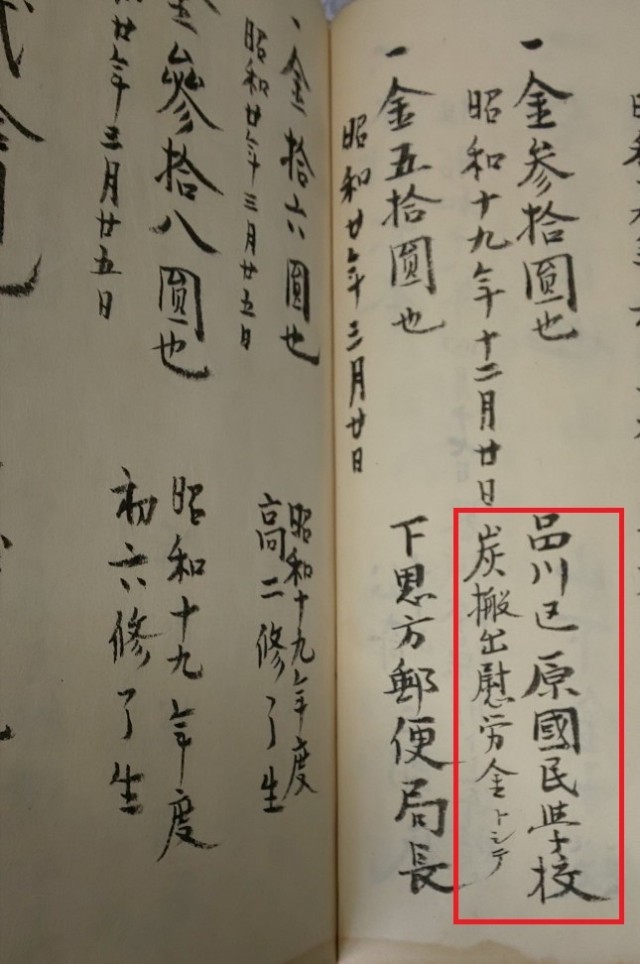 一金参拾圓也
品川区原國民学校
昭和十九年十二月廿日
炭搬出慰労金トシテ
一金五拾圓也
下思方郵便局長
昭和廿年三月廿日
一金拾六圓也
昭和十九年度
高二修了生
昭和廿年三月廿五日
金參拾八圓也
昭和十九年度
初六修了生
廿年三月廿五日